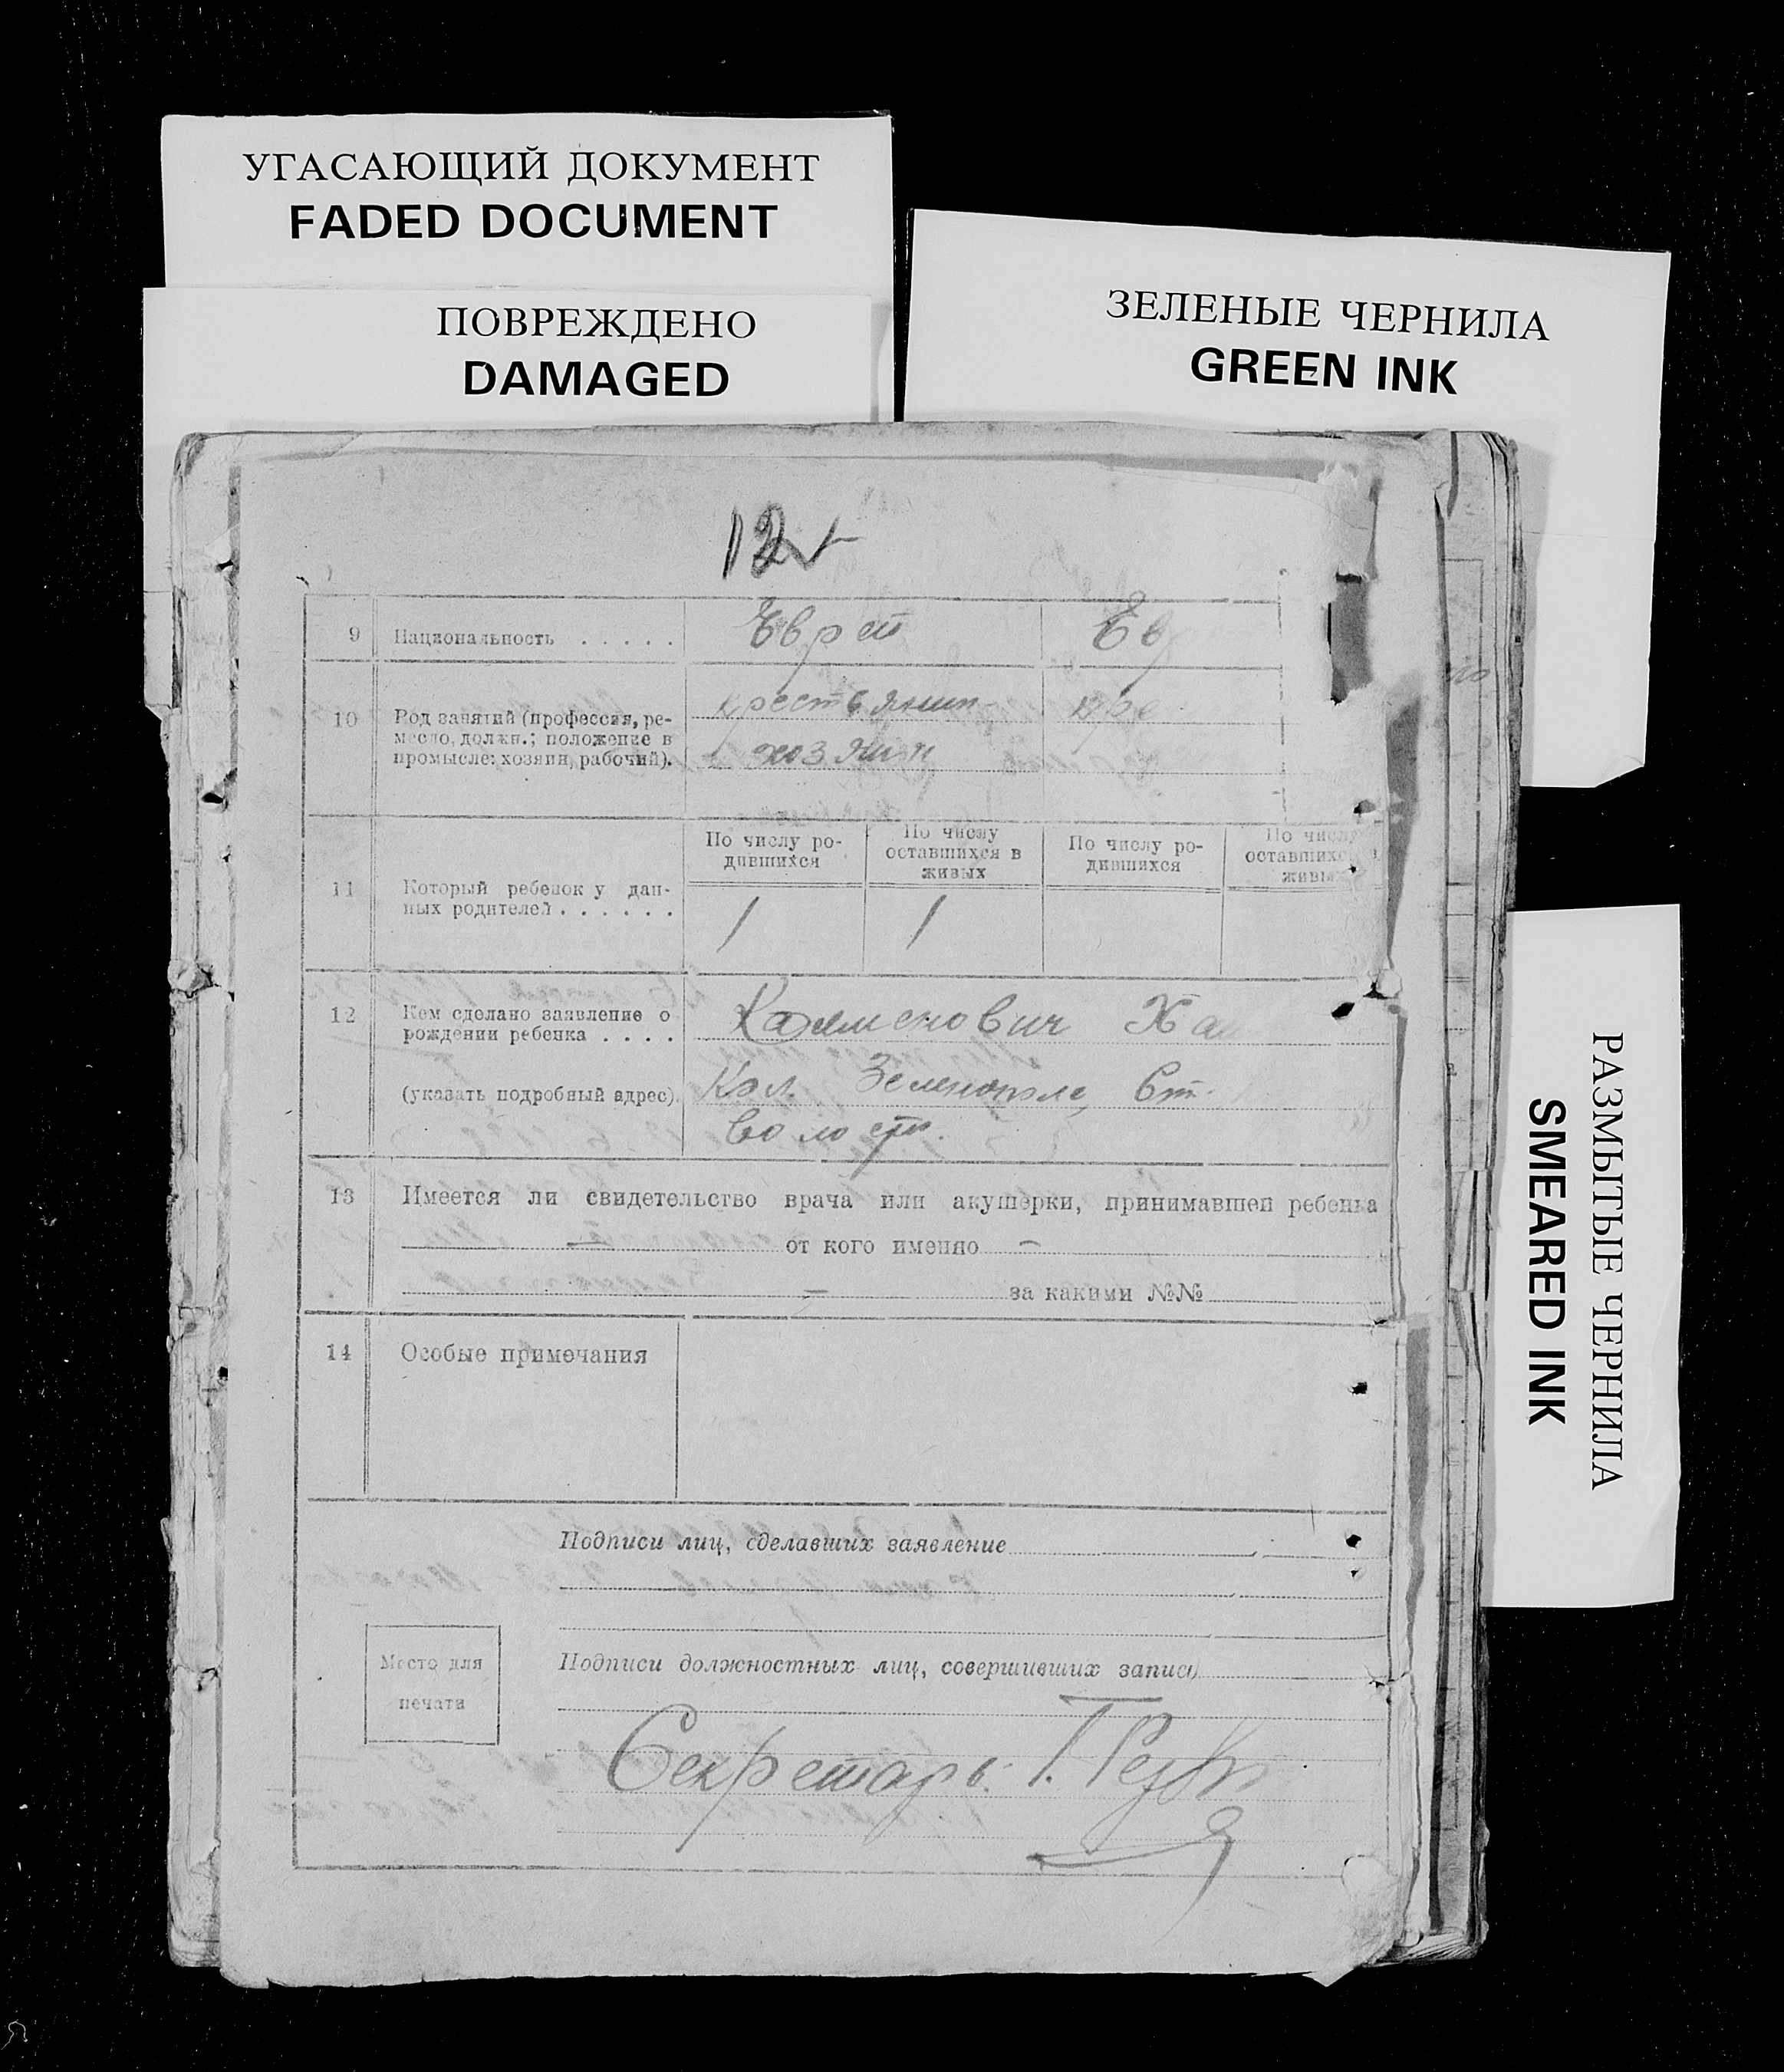 УГАСАЮЩИЙ ДОКУМЕНТ
FADED DOCUMENT
ПОВРЕЖДЕНО
DAMAGED
ЗЕЛЕНЫЕ ЧЕРНИЛА
GREEN INK
РАЗМЫТЫЕ ЧЕРНИЛА
SMEARED INK
12
9 Национальность . . . . . Еврей Ев
10 Род занятий (профессия, ре-
месло, должн.; положение в
промысле: хозяин, рабочий).
крестьянин кре
хозяин
11 Который ребенок у дан-
ных родителей . . . . . .
По числу ро-
дившихся
По числу
оставшихся в
живых
По числу ро-
дившихся
По числу
оставшихся в
живых
1 1
12 Кем сделано заявление о
рождении ребенка . . . .
(указать подробный адрес).
Калменович Ха
Кол. Зеленополе, Ст.
волости.
13 Имеется ли свидетельство врача или акушерки, принимавшей ребенка
— от кого именно —
— за какими №№
14 Особые примечания
Подписи лиц, сделавших заявление
Место для
печати
Подписи должностных лиц, совершивших запись
Секретарь: Г.